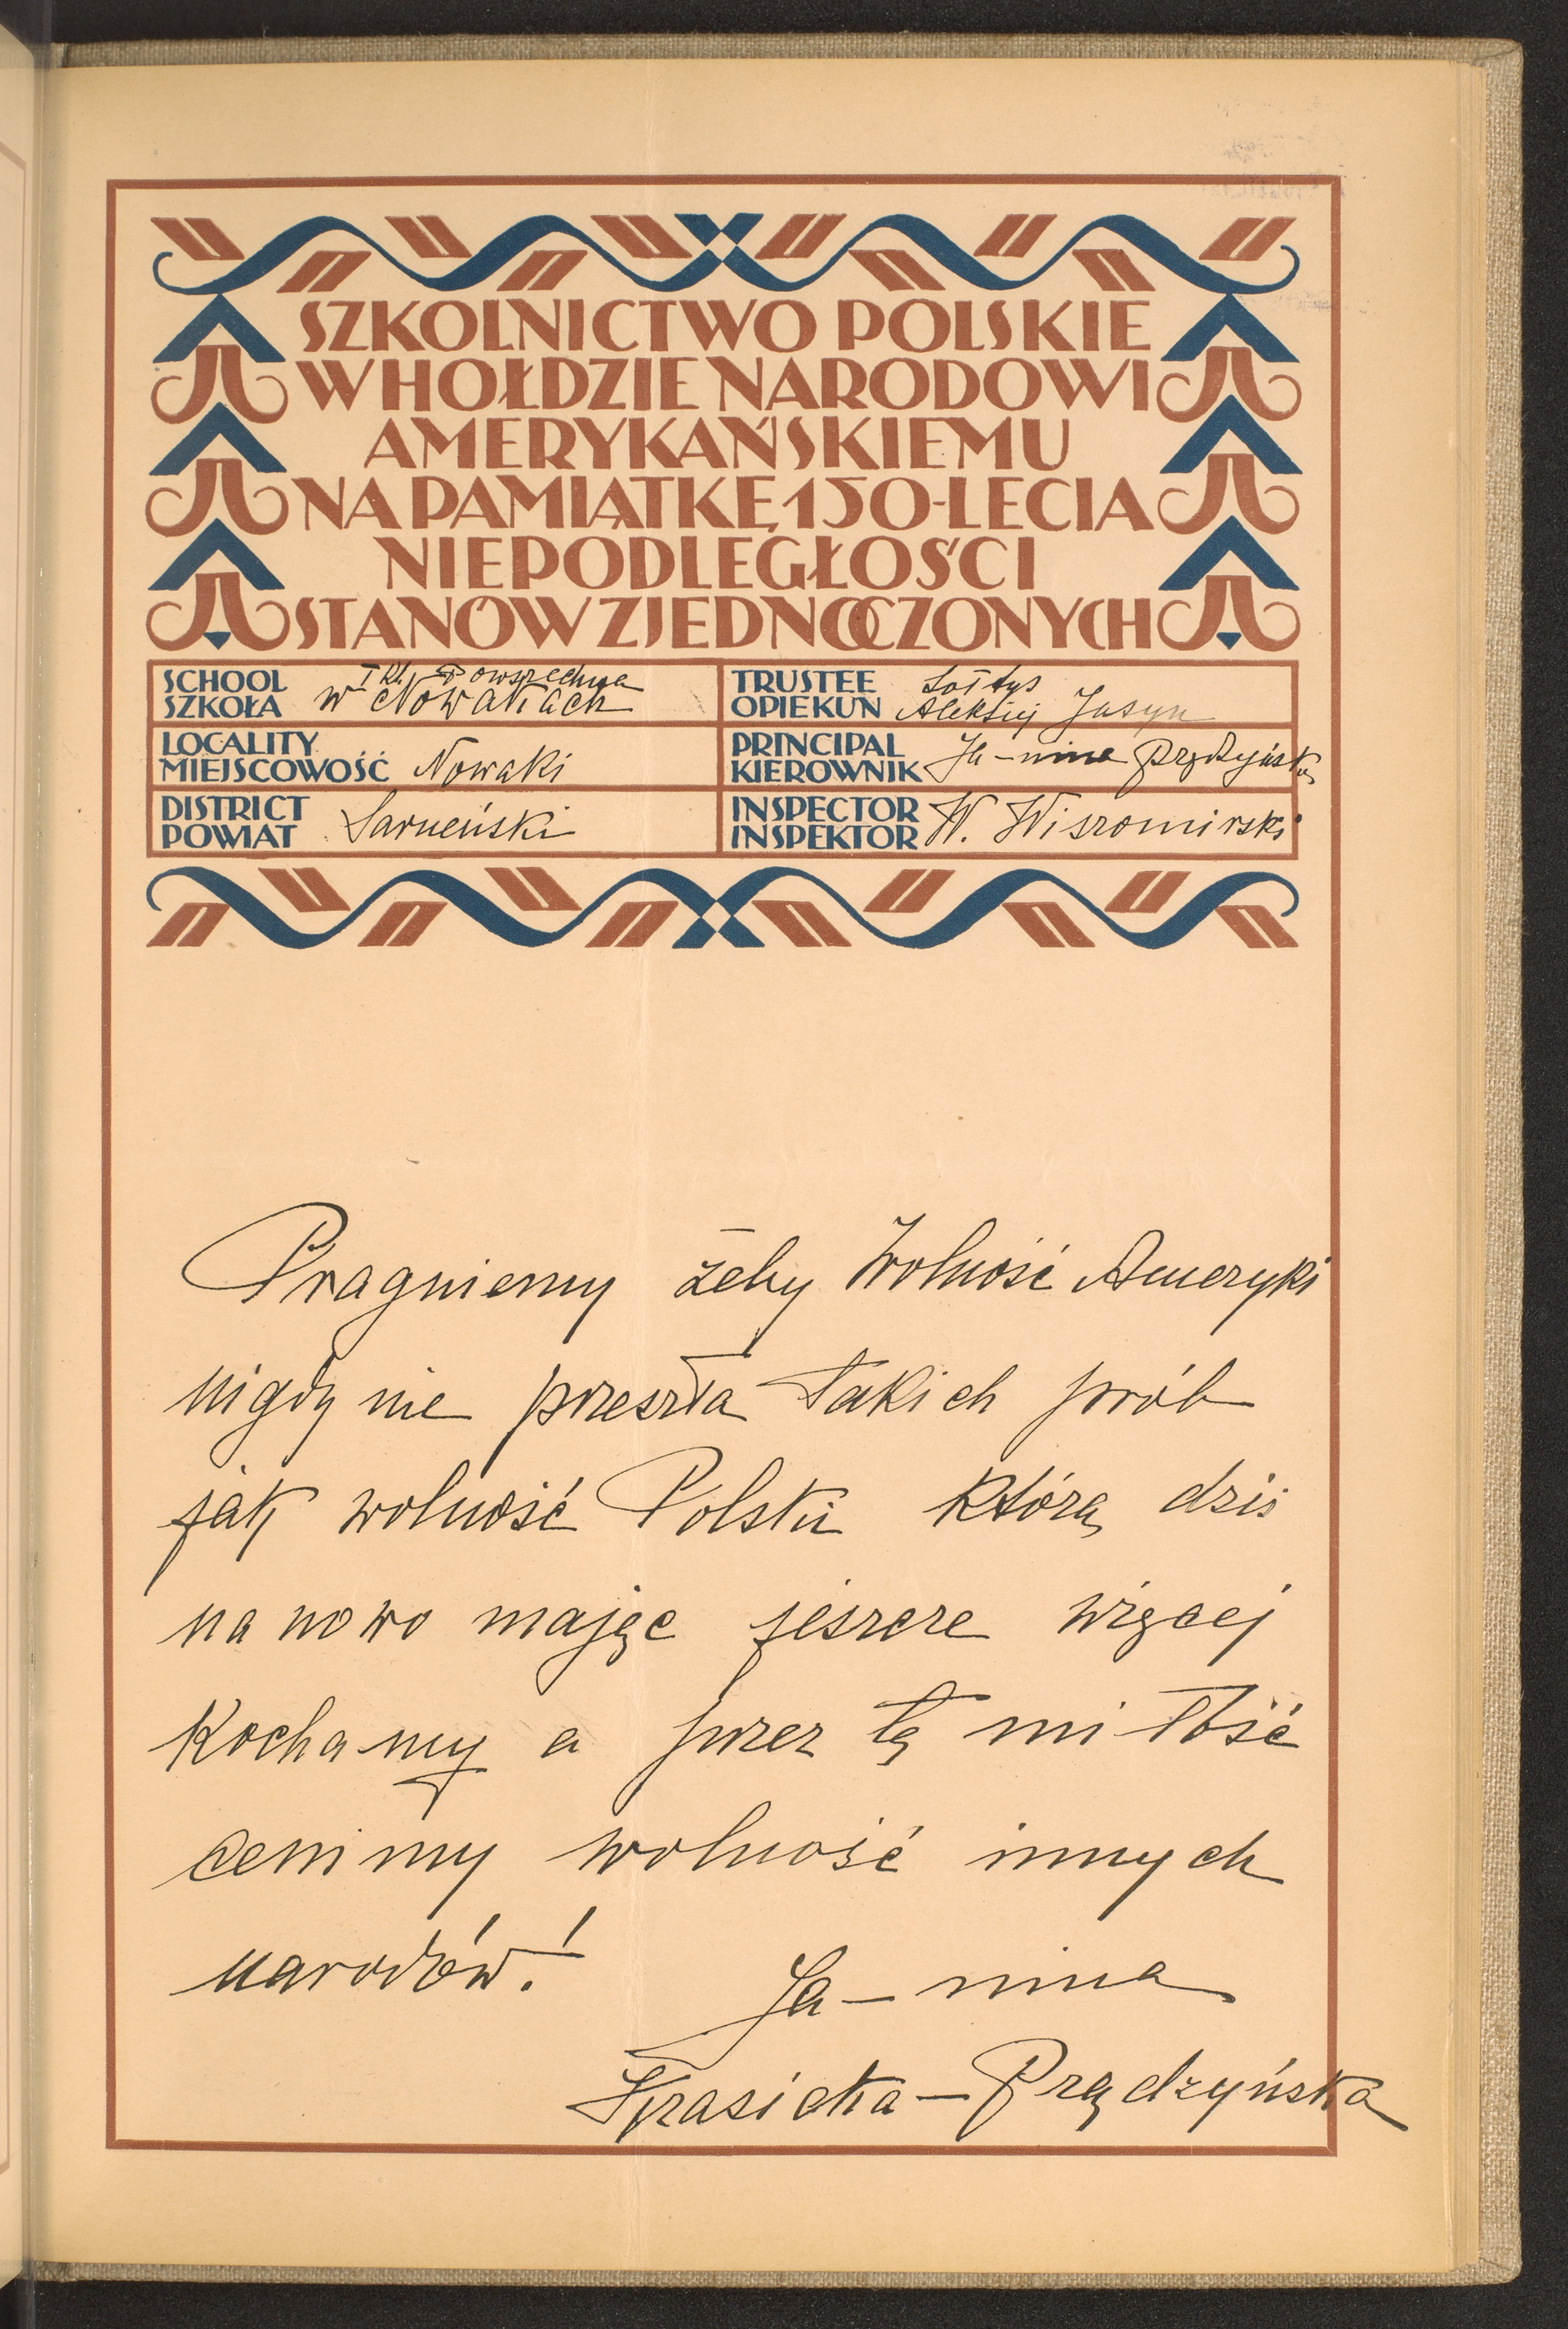 SZKOLNICTWO POLSKIE
W HOŁDZIE NARODOWI
AMERYKAŃSKIEMU
NA PAMIĄTKĘ 150-LECIA
NIEPODLEGŁOŚCI
STANÓW ZJEDNOCZONYCH
SCHOOL
SZKOŁA
I kl. Powszechna
w Nowakach
TRUSTEE
OPIEKUN
Sołtys
Aleksiej Jasyn
LOCALITY
MIEJSCOWOŚĆ Nowaki
PRINCIPAL
KIEROWNIK Ja-nina Prądzyńska
DISTRICT
POWIAT Sarneński
INSPECTOR
INSPEKTOR W. Wiszomirski
Pragniemy żeby Wolność Ameryki
nigdy nie przeszła takich prób
jak wolność Polski którą dziś
na nowo mając jeszcze więcej
kochamy a przez tę miłość
cenimy wolność innych
narodów!
Ja-nina
Krasicka-Prądzyńska